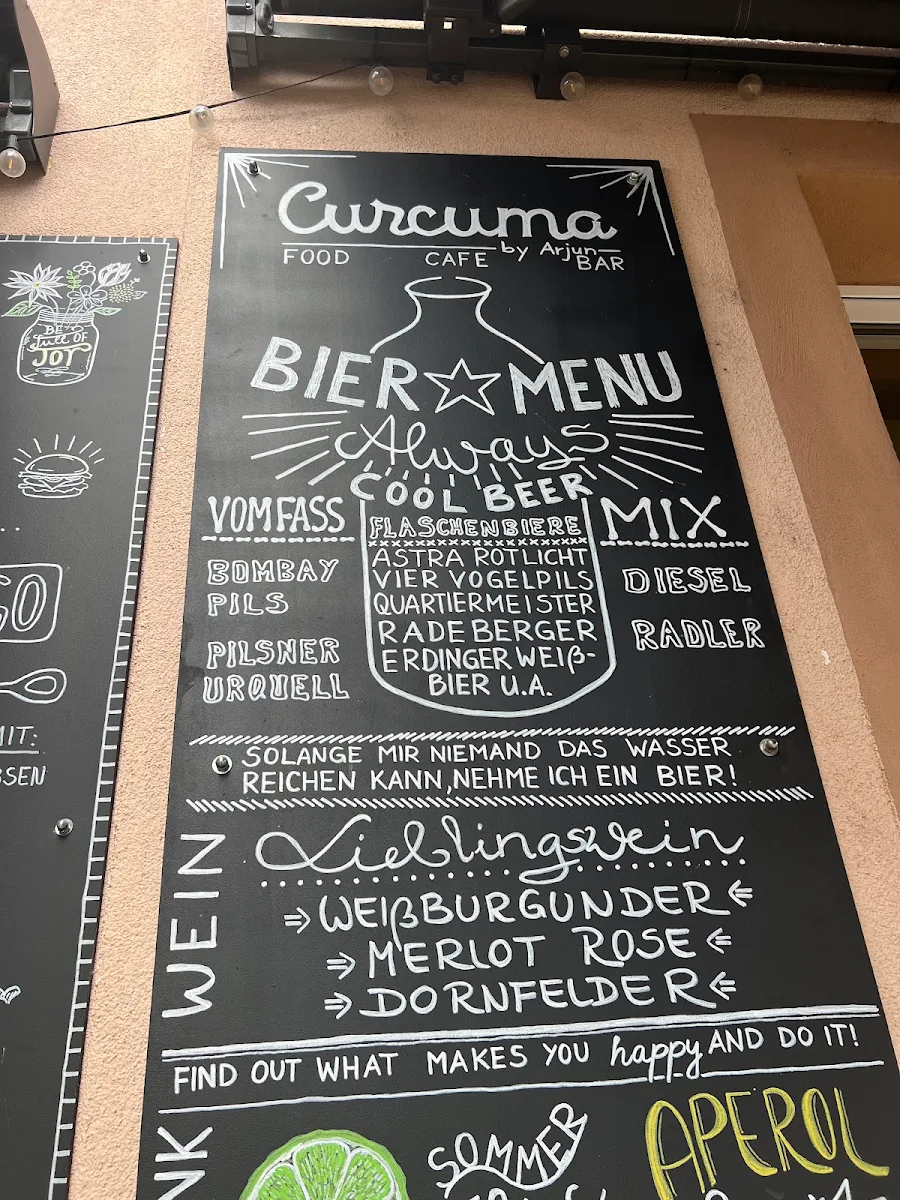 Curcuma
by Arjun
FOOD CAFE BAR
BIER MENU
Always
COOL BEER
VOMFASS
BOMBAY
PILS
PILSNER
URQUELL
FLASCHENBIERE
ASTRA ROTLICHT
VIER VOGELPILS
QUARTIERMEISTER
RADEBERGER
ERDINGER WEIß-
BIER U.A.
MIX
DIESEL
RADLER
SOLANGE MIR NIEMAND DAS WASSER
REICHEN KANN, NEHME ICH EIN BIER!
WEIN
Lieblingswein
WEIßBURGUNDER
MERLOT ROSE
DORNFELDER
FIND OUT WHAT MAKES YOU happy AND DO IT!
SOMMER
APEROL
BE
full OF
JOY